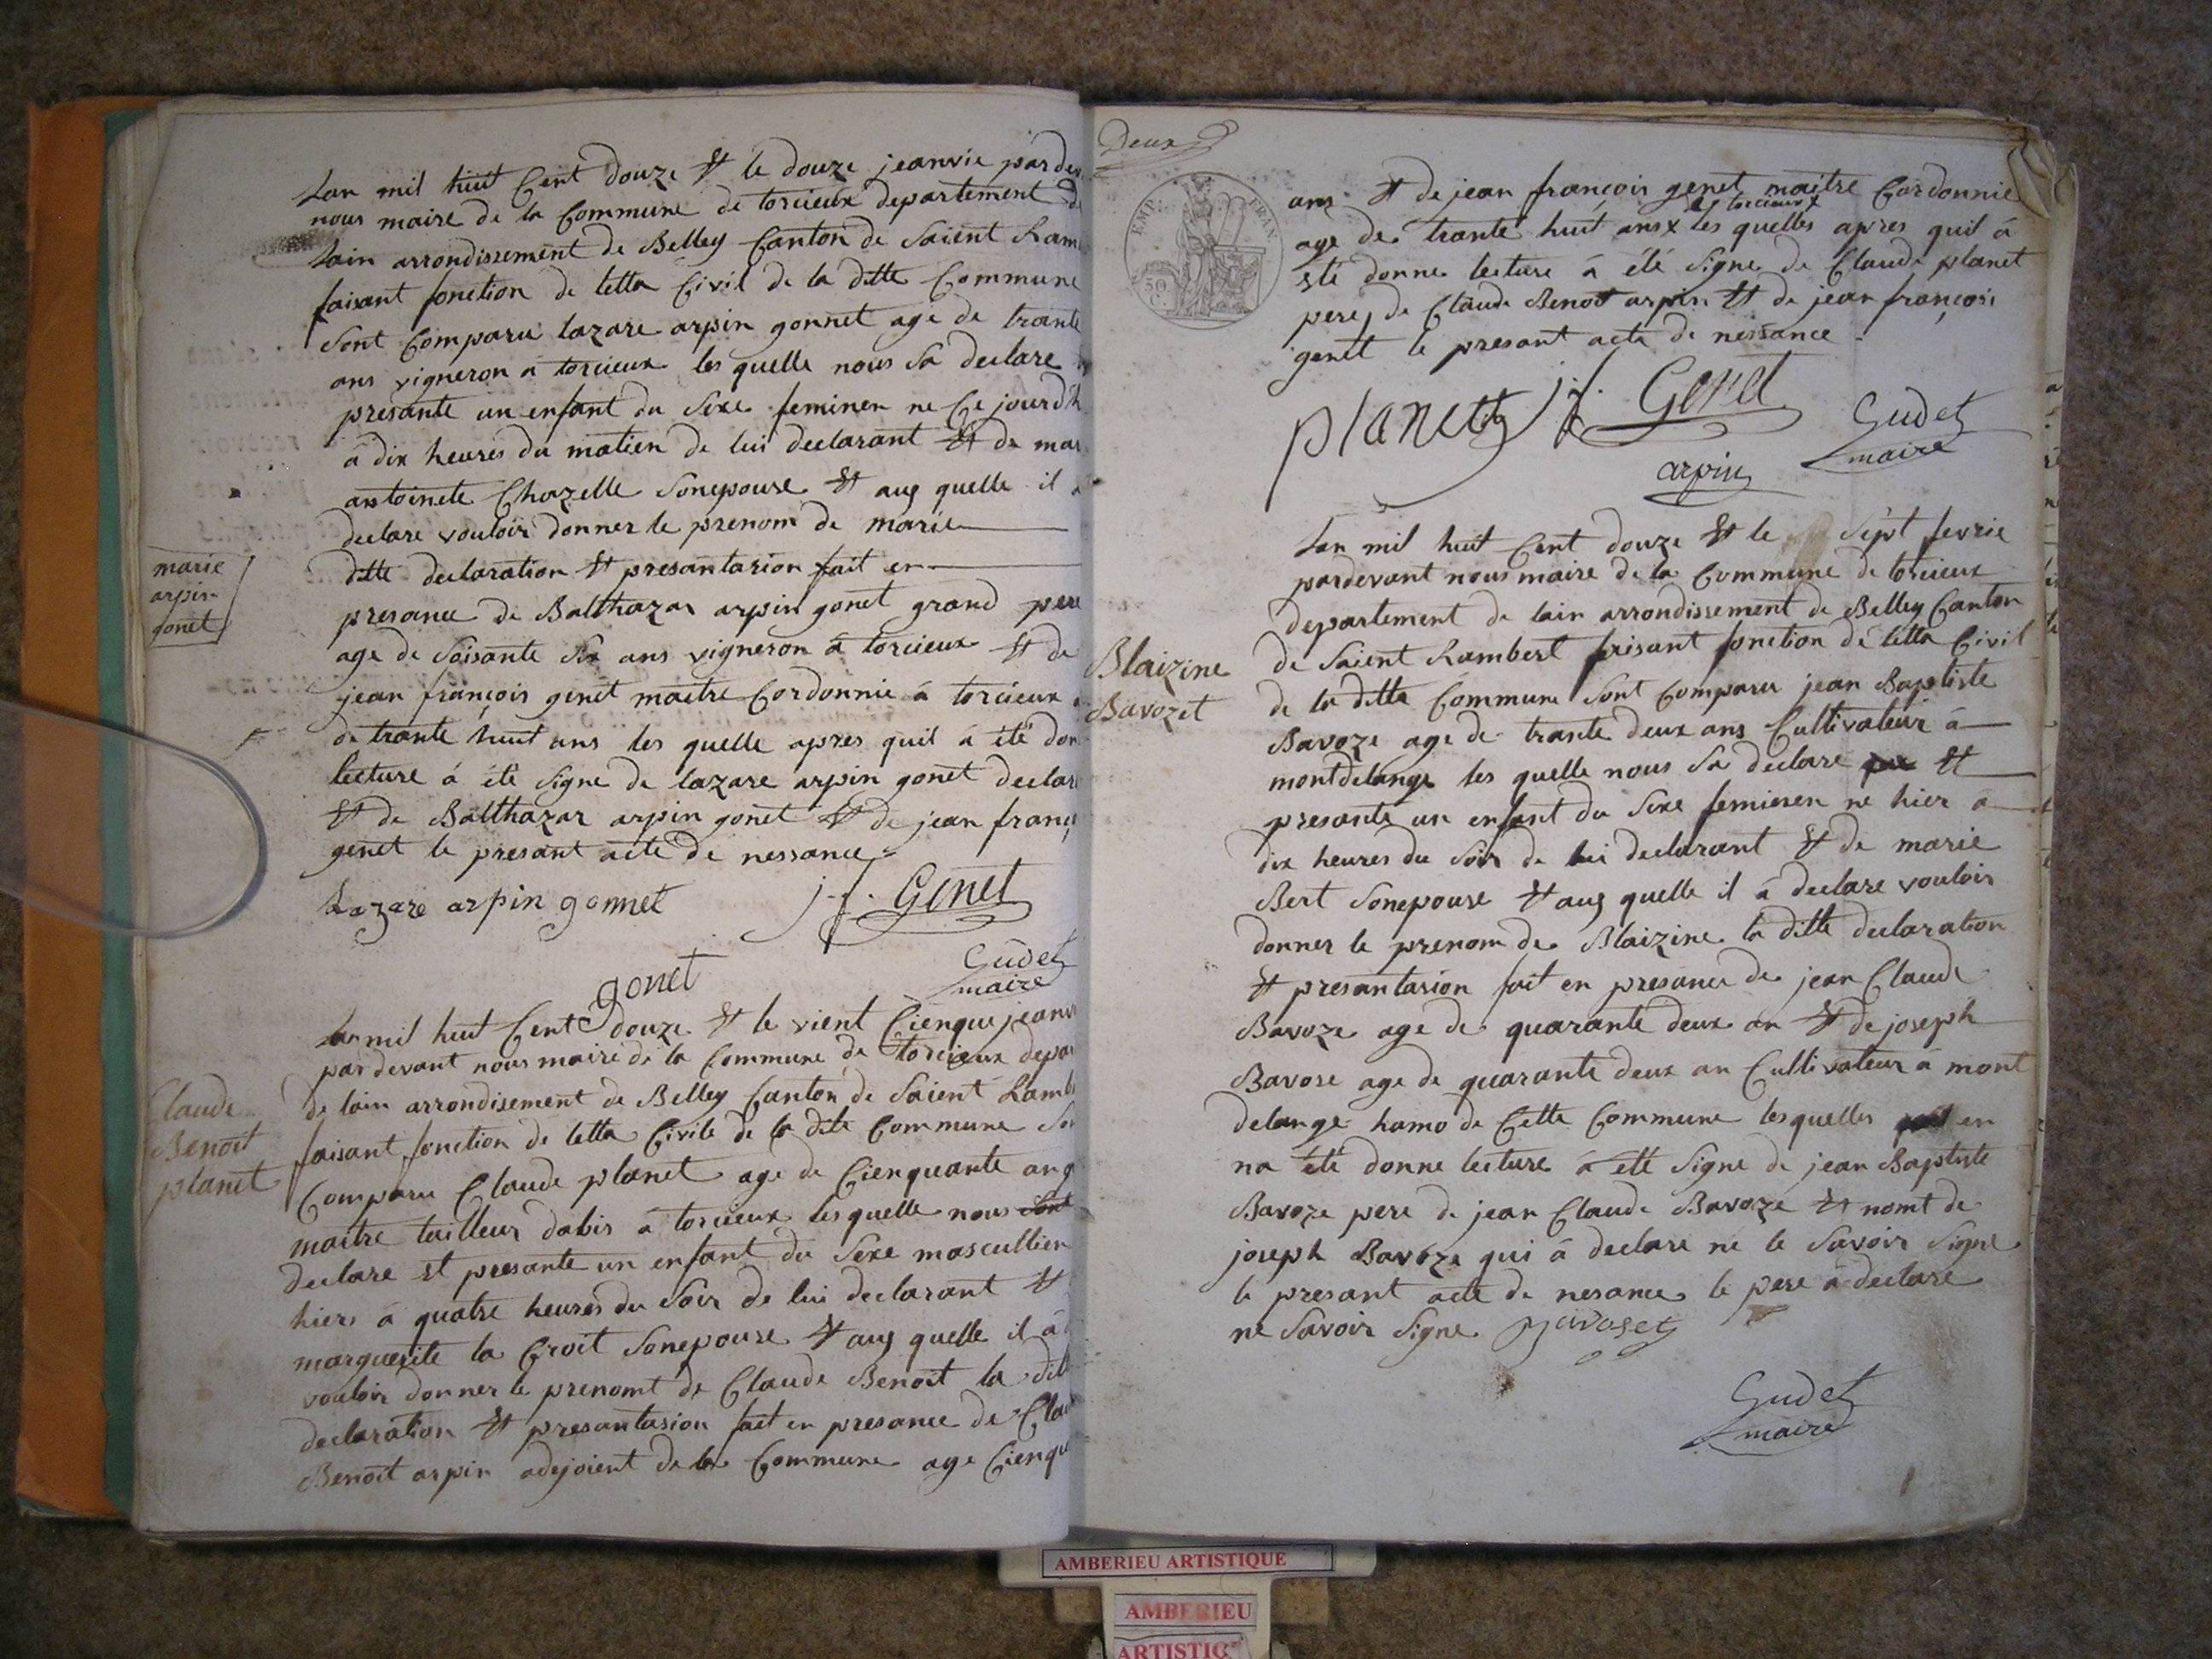 Lan mil huit Cent douze et le douze jeanvie par de
nous maire de la Commune de torcieux departement de
lain arrondissement de Belley Canton de Saient Ram
faisant fonction de letta Civil de la ditte Commune
Sont Comparu lazare arpin gonnet age de trante
ans vigneron a torcieux les quelle nous Sa declare
presante un enfant du Sexe feminen ne Ce jourdh
a dix heures du matien de lui declarant et de mar
antoinete Chazelle Sonepouse et auq quelle il a
declare vouloir donner le prenom de marie
marie
arpin
gonet
ditte declaration et presantarion fait en
presance de Balthazar arpin gonet grand pere
age de Soisante Six ans vigneron a torcieux et de
jean françois genet maitre Cordonnie a torcieux
de trante huit ans les quelle apres quil a été don
lecture a été Signe de lazare arpin gonet declar
et de Balthazar arpin gonet et de jean franç
genet le presant acte de nessance
Lazare arpin gonnet j. f. Genet
gonet Gudet
maire
Lan mil huit Cent douze et le vient Cienque jeanv
par devant nous maire de la Commune de torcieux depar
Claude
Benoit
planet
de lain arrondisement de Belley Canton de Saient Ramb
faisant fonction de letta Civile de la dite Commune Son
Comparu Claude planet age de Cienquante ang
maitre tailleur dabis a torcieux les quelle nous Sont
declare et presante un enfant du Sexe mascullien
hiers à quatre heures du Soir de lui declarant et
marguerite la Croit Sonepouse et auq quelle il a
vouloir donner le prenomt de Claude Benoit la dit
declaration et presantasion fait en presance de Clau
Benoit arpin adejoient de la Commune age Cienqu
Deux
EMP. FRAN.
50 C.
ans et de jean françois genet maitre Cordonnie
a torcieux
age de trante huit ans x les quelles apres quil à
sté donne lecture à été Signe de Claude planet
pere, de Claude Benoit arpin et de jean françois
genet le presant acte de nessance
planet j. f. Genet Gudet
arpin maire
Lan mil huit Cent douze et le Sept fevrie
pardevant nous maire de la Commune de torcieux
departement de lain arrondissement de Belley Canton
Blaizine
Bavozet
de Saient Rambert faisant fonction de letta Civil
de la ditte Commune Sont Comparu jean Baptiste
Bavoze age de trante deux ans Cultivateur à
montdelange les quelle nous Sa declare et
presante un enfant du Sexe femienen né hier a
dix heures du Soir de lui declarant et de marie
Bert Sonepouse et auq quelle il à declare vouloir
donner le prenom de Blaizine la ditte declaration
et presantarion fait en presance de jean Claude
Bavoze age de quarante deux an et de joseph
Bavose age de quarante deux an Cultivateur a mont
delange hamo de Cette Commune lesquelles en
na été donne lecture a été Signe de jean Baptiste
Bavoze pere de jean Claude Bavoze et nomt de
joseph Bavoze qui à declare ne le Savoir Signe
le presant acte de nesance le pere à declare
ne Savoir Signe Bavoset
Gudet
maire
AMBERIEU ARTISTIQUE
AMBERIEU
ARTISTIQ